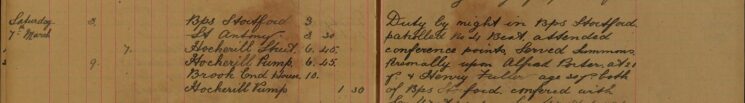 Saturday 8. Bps Stortford 3 Duty by night in Bps Stortford
7th March St Antony 8 30 patrolled No 4 Beat, attended
7. Hockerill Street 6.45. conference points, Served Summons
9. Hockerill Pump 6.45. Personally upon Alfred Porter, at 21
Brook End house 10. & Henry Fuller age 20 yrs both
Hockerill Pump 1 30 of Bps Stortford confered with